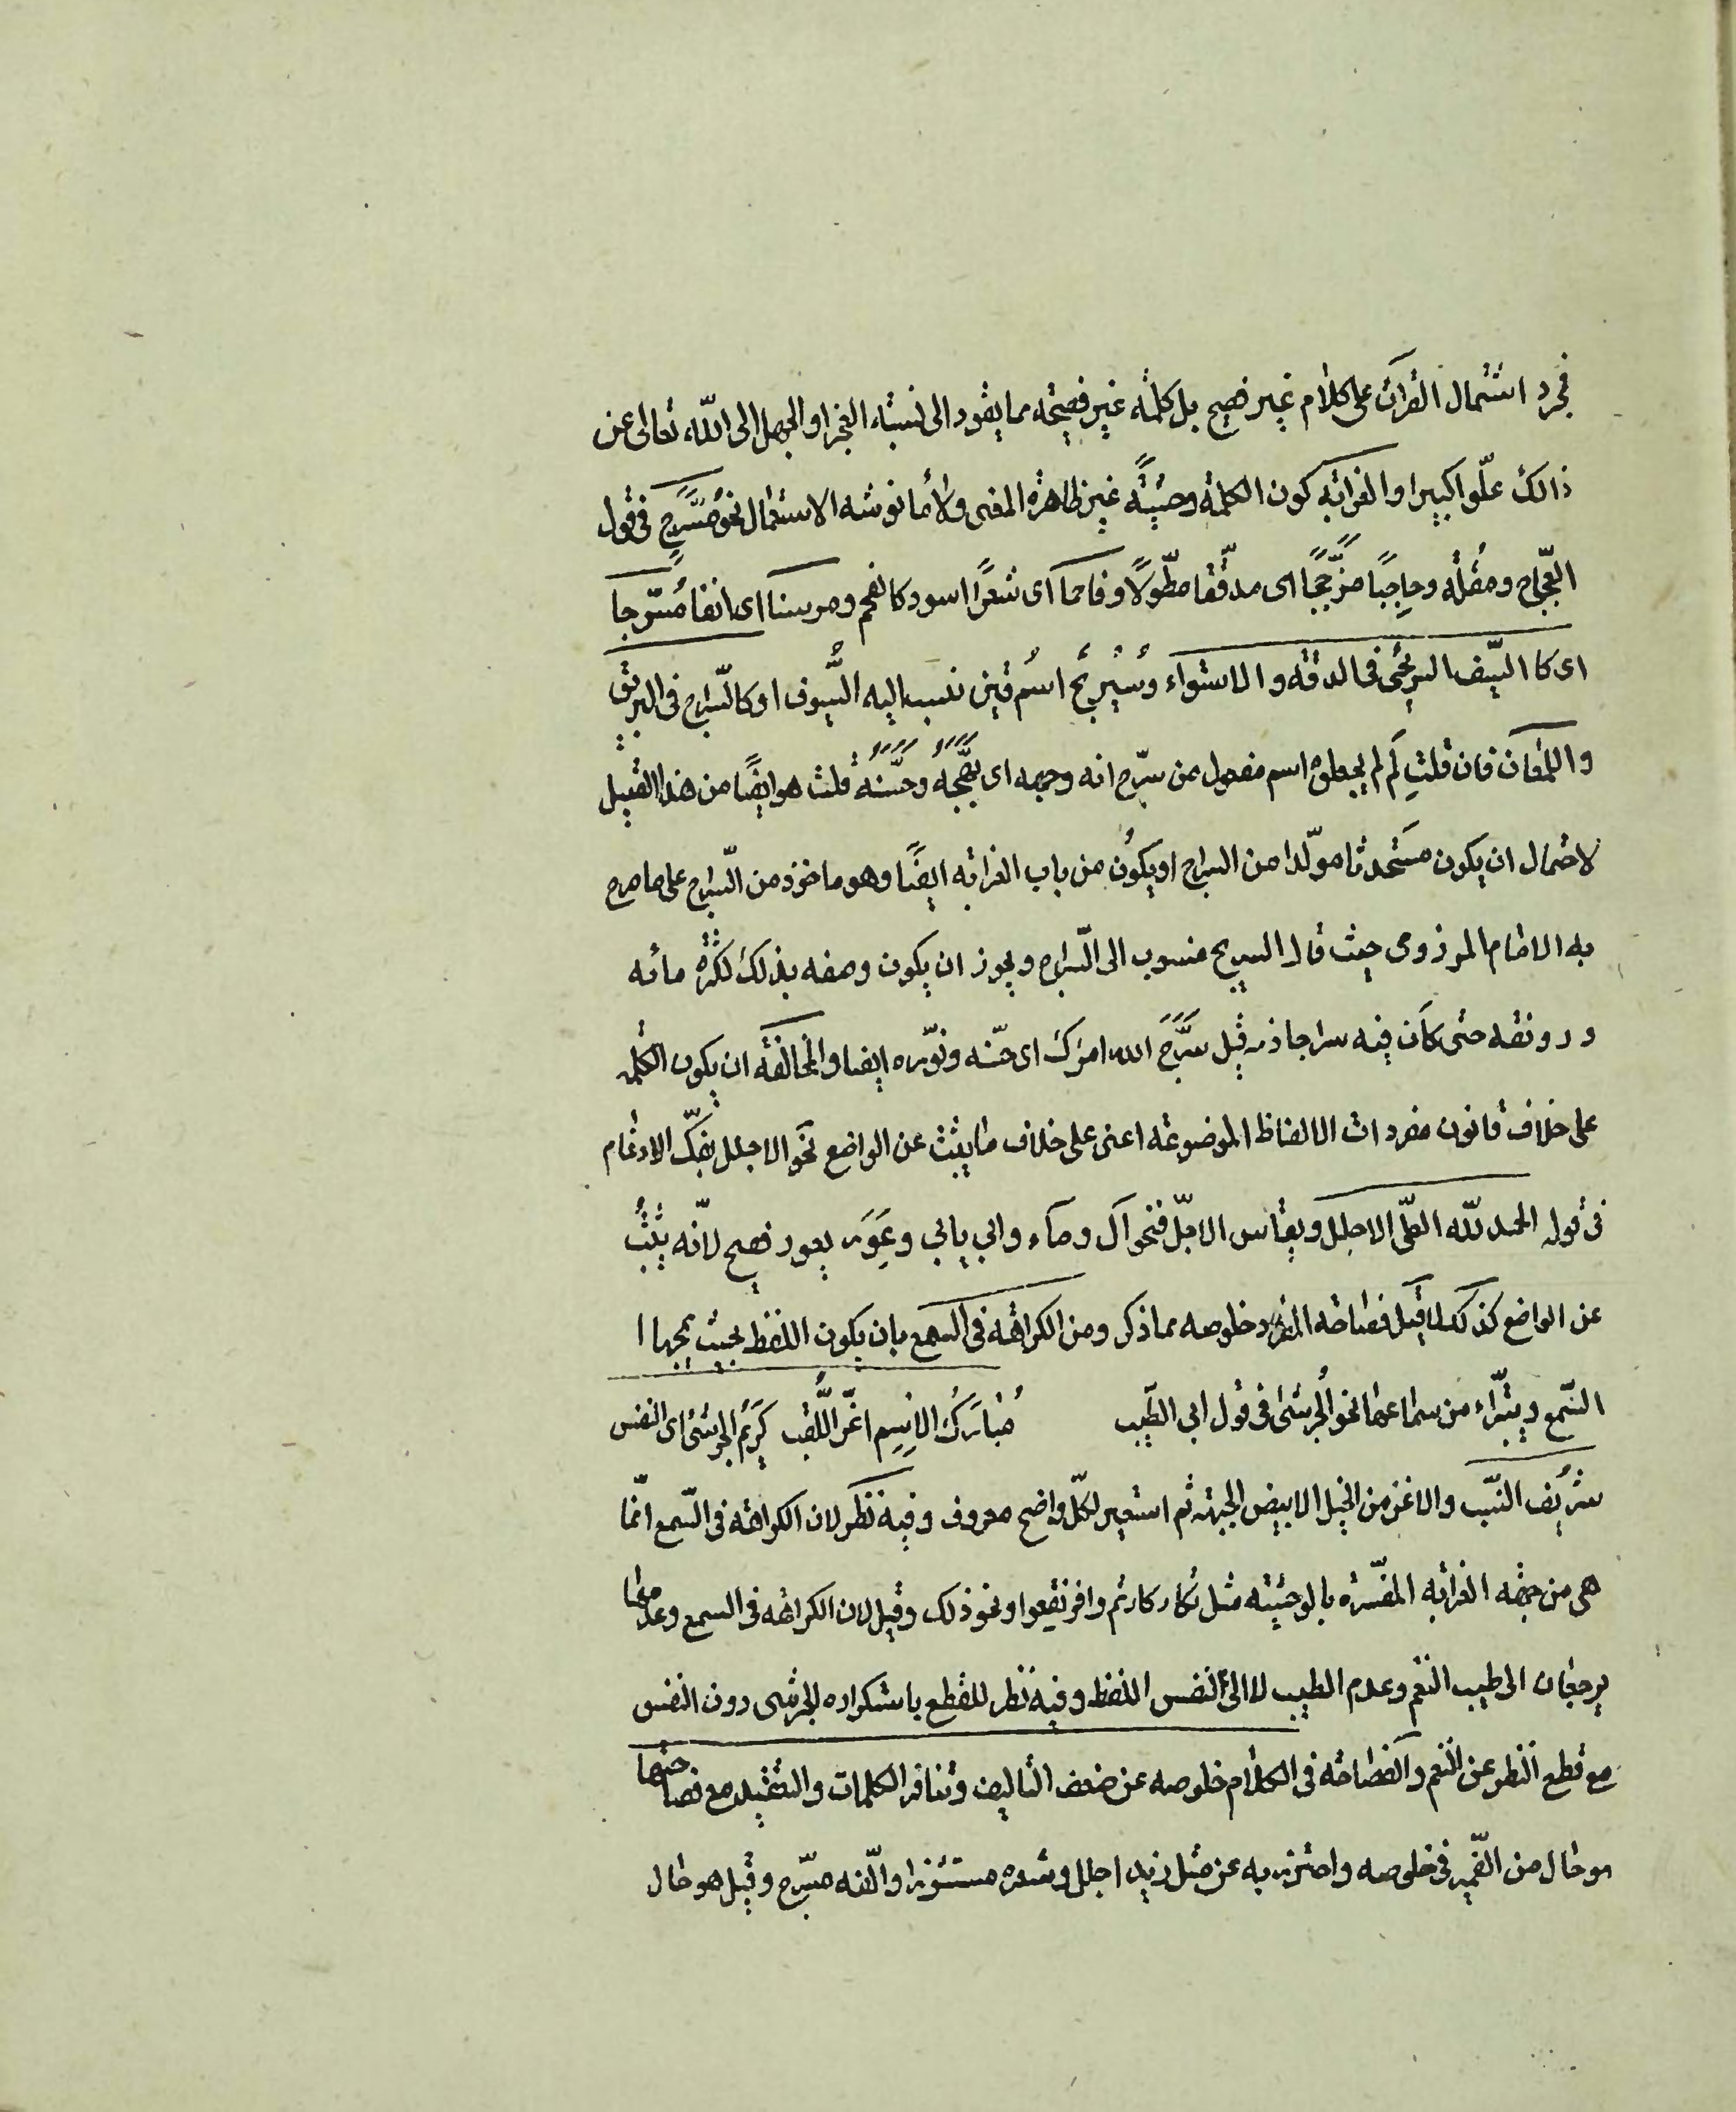 فمجرد اشتمال القرآن على كلام غير فصيح بل كلمة غير فصيحة مما يقود الى نسبة العجز او الجهل الى الله، تعالى عن
ذالك علّوا كبيرا والغرابة كون الكلمة وحشيّةً غير ظاهرة المعنى ولا مأنوسة الاستعمال نحو مُسَرَّجٍ فى قول
العجّاج ومقلةً وحاجِبًا مزجّجًا اى مدقّقا مطوّلًا وفاحما اى شعرًا اسود كالفحم ومرسنا اى انفا مُسَرّجا
اى كا السّيف السريجى فى الدقة والاستواء وسُرَيْجٌ اسم قين نسب اليه السّيوف او كالسّراج فى البريق
واللمعان فان قلتِ لَم لم يجعلوه اسم مفعول من سرّج الله وجهه اى بَهَّجَهُ وحَسَّنَهُ قلت هو ايضًا من هذا القبيل
لاحتمال ان يكون مستحدثا مولّدا من السراج او يكون من باب الغرابة ايضًا وهو ماخوذ من السّراج على ما صرح
به الامام المرزوقى حيث قال السريجى منسوب الى السّراج ويجوز ان يكون وصفه بذلك لكثرة مائه
ورونقه حتى كان فيه سراجا ذمه قيل سَرَّجَ الله امرك اى حسّنه ونوّره ايضا والمخالفة ان يكون الكلمه
على خلاف قانون مفردات الالفاظ الموضوعة اعنى على خلاف ما يثبت عن الواضع نحو الاجلل بفكّ الادغام
فى قوله الحمد لله العلّى الاجلل وبقياس الاجلّ فنحو آل وماء وابى يابى وعَوِرَ يعور فصيح لانّه يثبتُ
عن الواضع كذلك قيل فصاحة المفرد خلوصه مما ذكر ومن الكراهة فى السمع بان يكون اللفظ بحيث يمجها ا
السّمع ويتبّراء من سماعها نحو الجرشىٰ فى قول ابى الطّيب مُبارَكُ الاسِم اغّر اللّقب كَرِيمُ الجرشى اى النفس
شريُف النسّب والاغر من الخيل الابيض الجبهة ثم استعير لكلّ واضح معروف وفيه نظر لان الكراهة فى السّمع انّما
هى من جهة الغرابة المفسّرة بالوحشية مثل تكاركارتم وافرنقعوا ونحو ذلك وقيل لان الكراهة فى السمع وعدمها
يرجعان الى طيب النغم وعدم الطيب لا الى النفس اللفظ وفيه نظر للقطع باستكراه الجرشى دون النفس
مع قطع النظر عن النغم والفصاحة فى الكلام خلوصه عن ضعف التاليف وتنافر الكلمات والتعقيد مع فصاحتها
هو حال من الضّمير فى خلوصه واحترز به عن مثل زيد اجلل وشعره مستشزرا وانّفه مسّرج وقيل هو حال